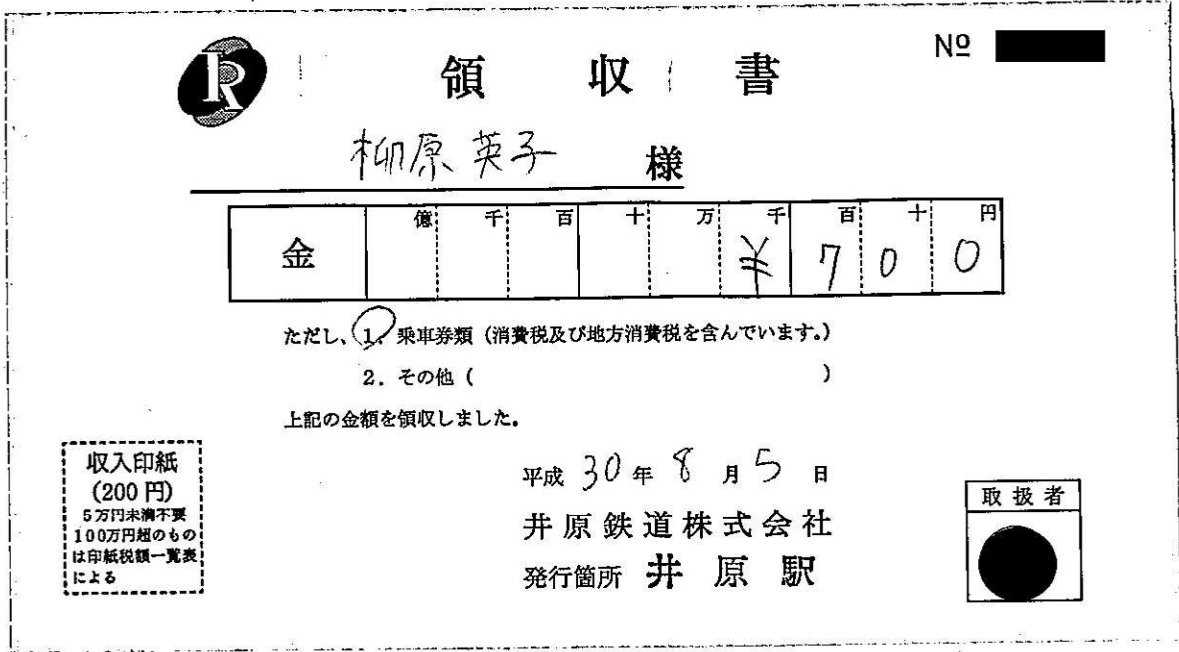 領収書 №
IR
柳原英子 様
金 億 千 百 十 万 千 百 十 円
¥ 7 0 0
ただし、1. 乗車券類(消費税及び地方消費税を含んでいます。)
2. その他( )
上記の金額を領収しました。
収入印紙
(200円)
5万円未満不要
100万円超のもの
は印紙税額一覧表
による
平成 30 年 8 月 5 日
井原鉄道株式会社
発行箇所 井原駅
取扱者